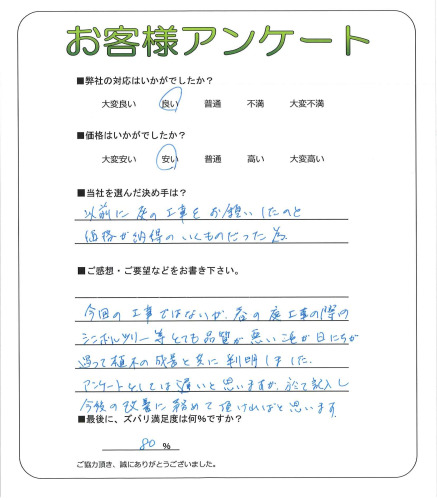 お客様アンケート
■弊社の対応はいかがでしたか?
大変良い 良い 普通 不満 大変不満
■価格はいかがでしたか?
大変安い 安い 普通 高い 大変高い
■当社を選んだ決め手は?
以前に庭の工事をお願いしたのと
価格が納得のいくものだった為
■ご感想・ご要望などをお書き下さい。
今回の工事ではないが、春の庭工事の際の
シンボルツリー等とても品質が悪い事が日にちが
過って植木の成長と共に判明しました.
アンケートとしては遅いと思いますが、記入し
今後の改善に努めて頂ければと思います
■最後に、ズバリ満足度は何%ですか?
80 %
ご協力頂き、誠にありがとうございました。